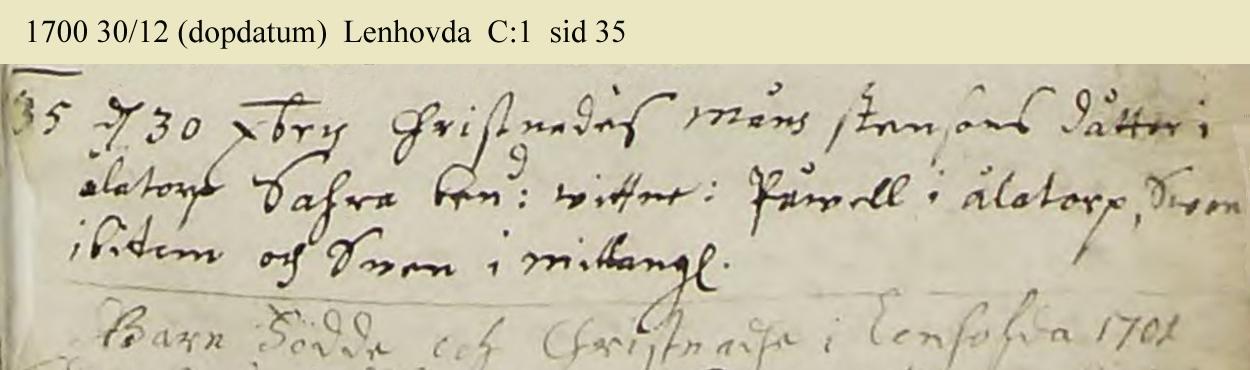 1700 30/12 (dopdatum) Lenhovda C:1 sid 35
35 d 30 xbris Christnades Måns Stensons dåtter i
ålatorp Sahra ben: wittne: Påwell i ålatorp, Swen
ibittem och Swen i millangl.
Barn Födde och Christnade i Lenhofda 1701